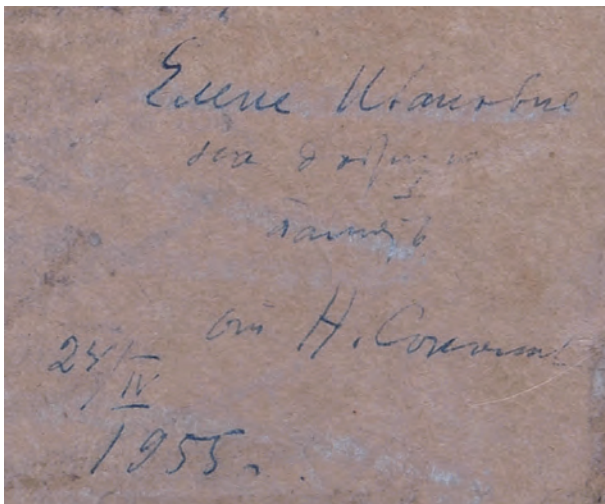 Елене Ивановне
на добрую
память
от Н. Соколова
24/IV
1955.